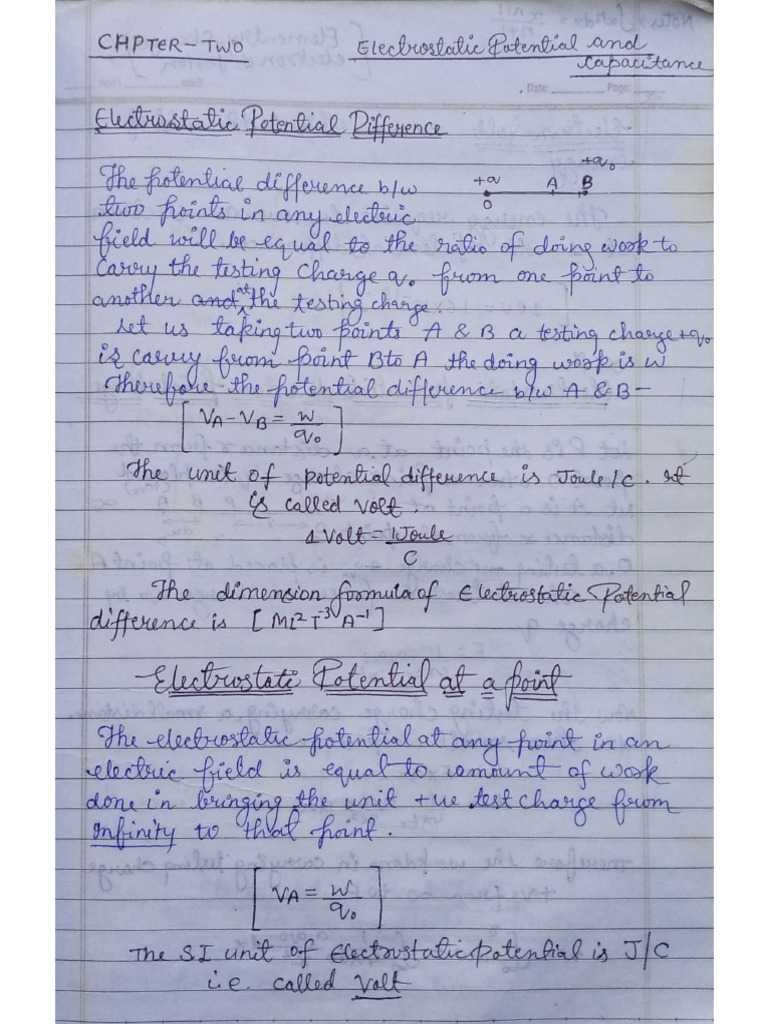 CHPTER-TWO Electrostatic Potential and
Capacitance
Date: Page:
Electrostatic Potential Difference
The potential difference b/w
+q A B +q₀
O
two points in any electric
field will be equal to the ratio of doing work to
carry the testing charge q₀ from one point to
another and at the testing charge.
Let us taking two points A & B a testing charge +q₀
is carry from point B to A the doing work is W
Therefore the potential difference b/w A & B -
[VA - VB = W/q₀]
The unit of potential difference is Joule/C. It
is called volt.
1 Volt = 1Joule/C
The dimension formula of Electrostatic Potential
difference is [ML² T⁻³ A⁻¹]
Electrostati Potential at a point
The electrostatic potential at any point in an
electric field is equal to amount of work
done in bringing the unit +ve test charge from
Infinity to that point.
[VA = W/q₀]
The SI unit of Electrostatic Potential is J/C
i.e. called Volt